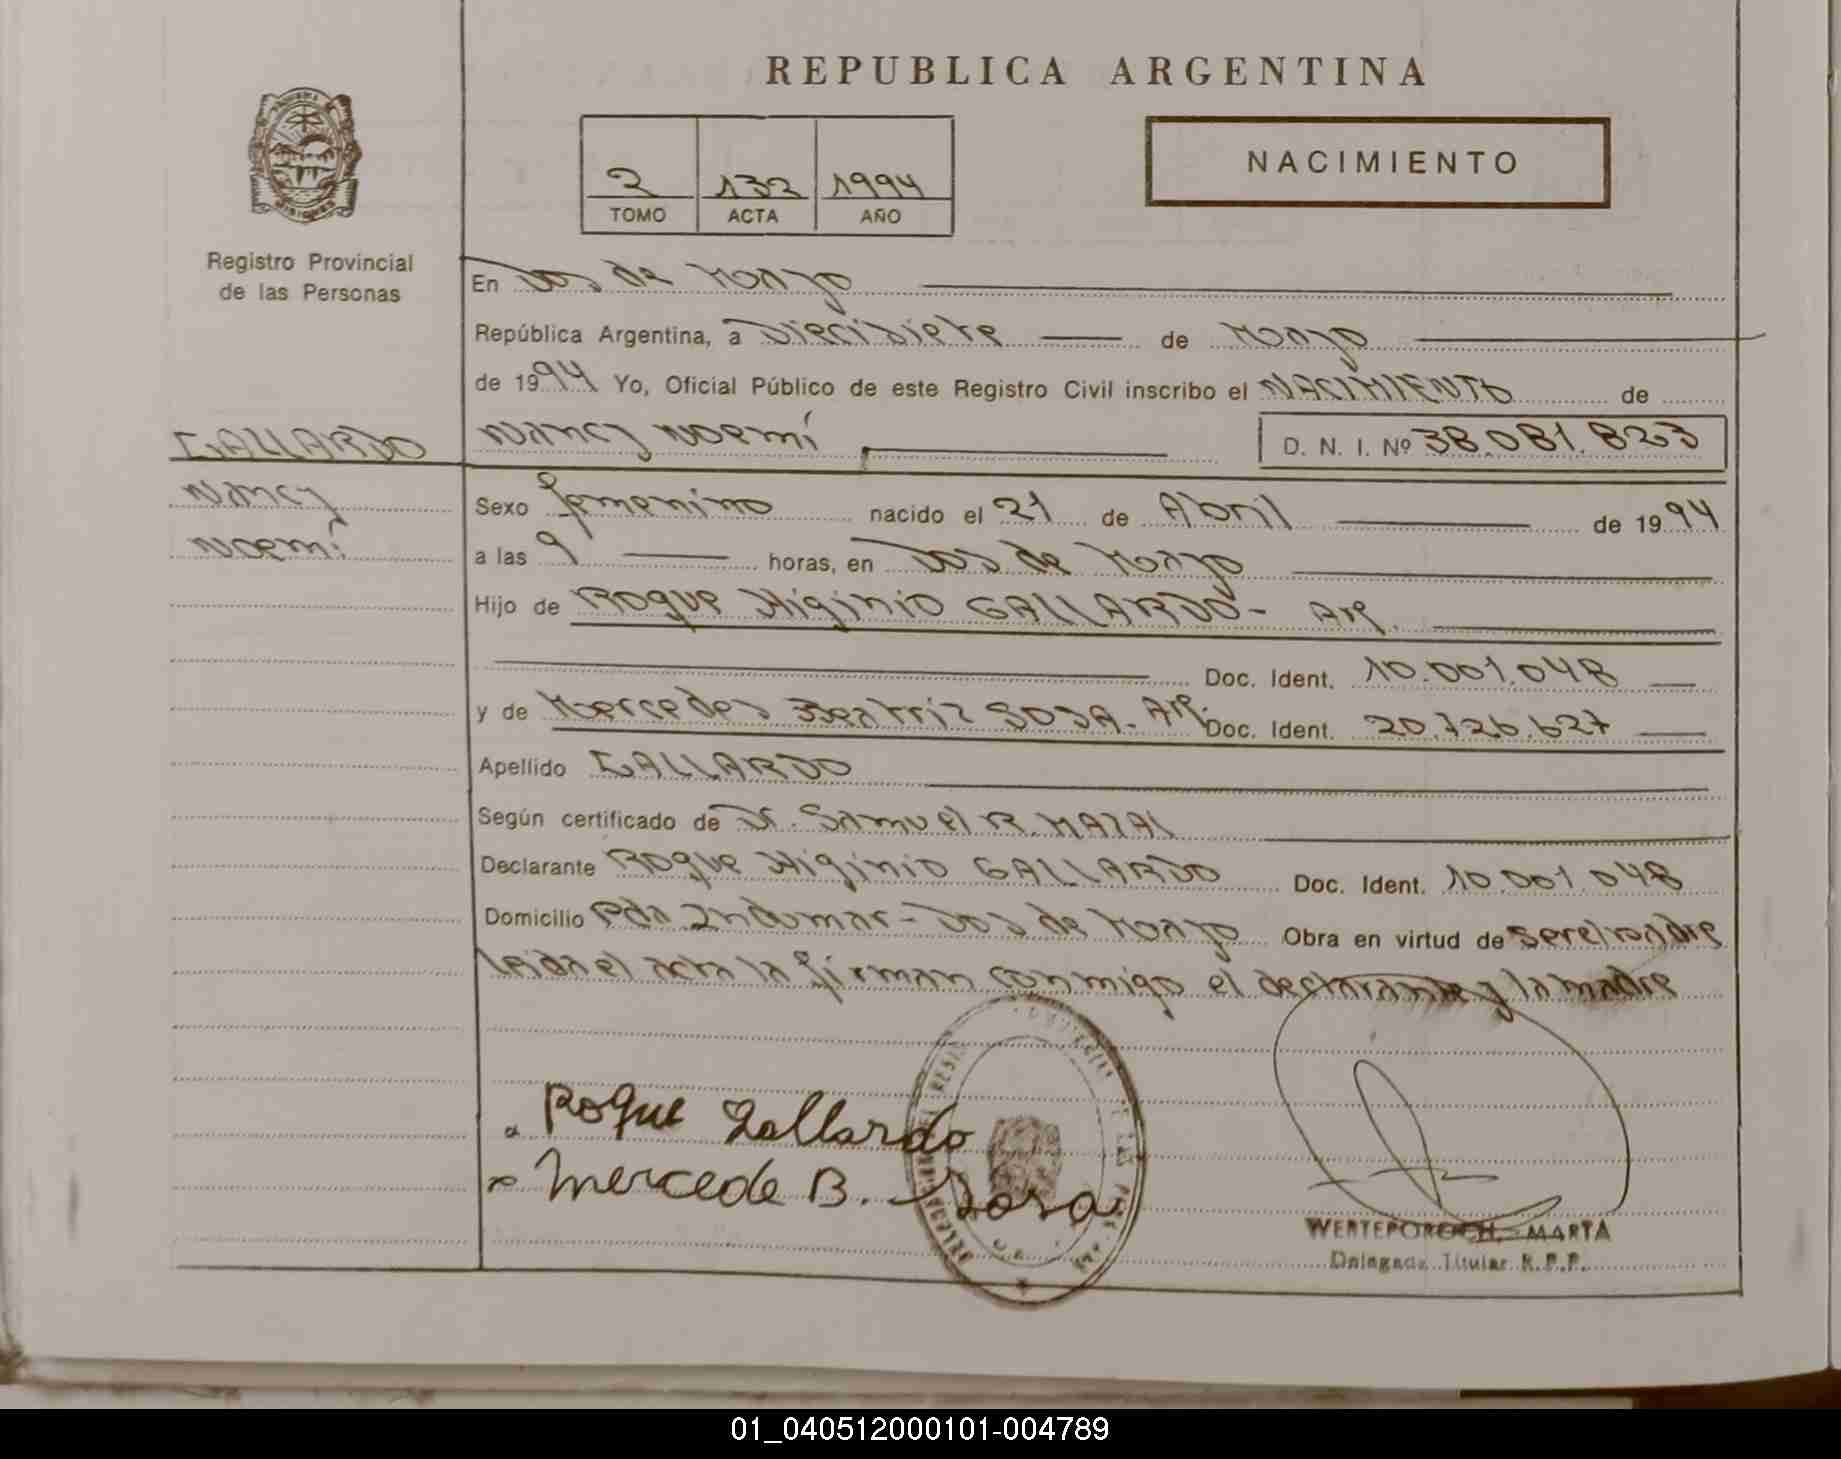 REPUBLICA ARGENTINA
NACIMIENTO
2 132 1994
TOMO ACTA AÑO
Registro Provincial
de las Personas
En Dos de Mayo
República Argentina, a Diecisiete de Mayo
de 1994 Yo, Oficial Público de este Registro Civil inscribo el NACIMIENTO de
GALLARDO Nancy Noemí D. N. I. Nº 38.081.823
Nancy
Noemí
Sexo femenino nacido el 21 de Abril de 1994
a las 9 horas, en Dos de Mayo
Hijo de Roque Higinio GALLARDO - Arg.
Doc. Ident. 10.001.048
y de Mercedes Beatriz SOSA - Arg. Doc. Ident. 20.726.627
Apellido GALLARDO
Según certificado de Dr. Samuel R. MAZAL
Declarante Roque Higinio GALLARDO Doc. Ident. 10.001.048
Domicilio Pda Indumar - Dos de Mayo Obra en virtud de ser el padre
leida el acta la firman conmigo el declarante y la madre
Roque Gallardo
Mercede B. Sosa
MARTA
Delegada Titular R.P.P.
01_040512000101-004789